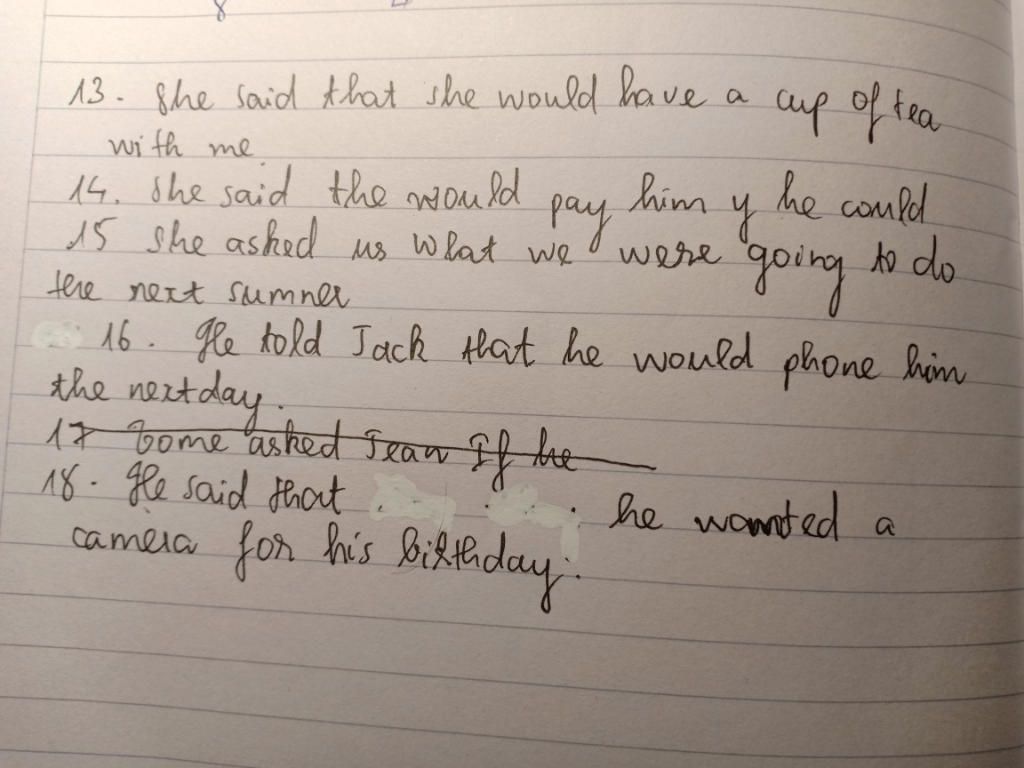 13. She said that she would have a cup of tea
with me.
14. She said the would pay him y he could
15 She asked us what we were going to do
the next sumner
16. He told Jack that he would phone him
the next day.
17 Tome asked Jean If he
18. He said that he wanted a
camera for his birthday.